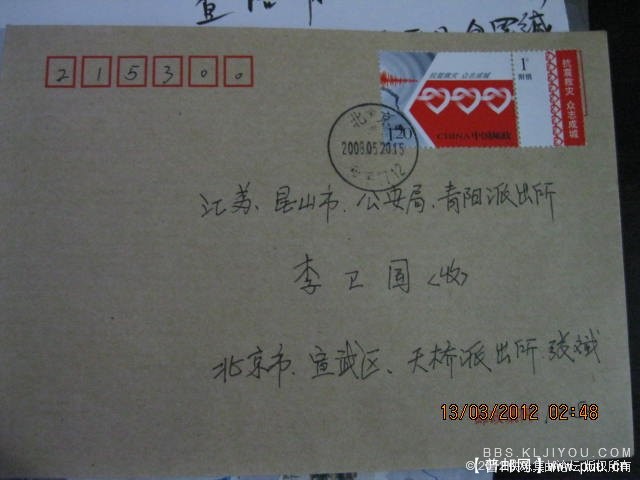 215300
抗震救灾 众志成城
1元
附捐
抗震救灾 众志成城
1.20
CHINA中国邮政
北京
2008.05.20.15
江苏、昆山市、公安局、青阳派出所
李卫国〈收〉
北京市、宣武区、天桥派出所 张斌
13/03/2012 02:48
BBS.KLJIYOU.COM
【普邮网】www.puu.cn